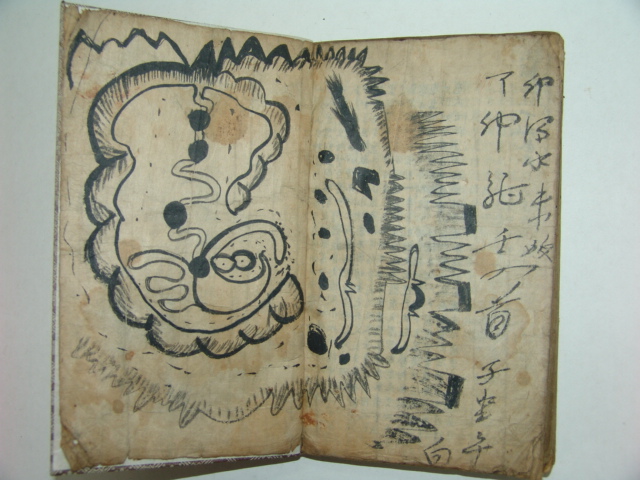 卯得水未破
丁卯龍壬入首子坐午
向